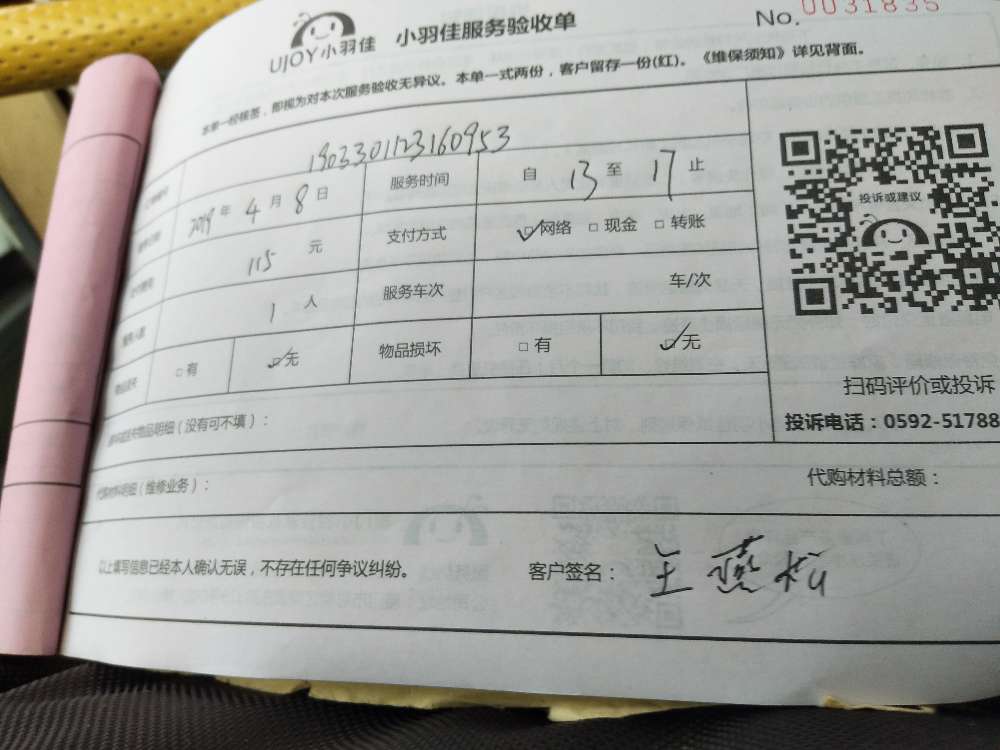 UJOY小羽佳 小羽佳服务验收单 No. 0031835
本单一经核签，即视为对本次服务验收无异议。本单一式两份，客户留存一份(红)。《维保须知》详见背面。
1903301123160953
2019 年 4 月 8 日 服务时间 自 13 至 17 止
115 元 支付方式 网络 现金 转账
投诉或建议
1 人 服务车次 车/次
有 无 物品损坏 有 无
扫码评价或投诉
物品明细（没有可不填）：
投诉电话：0592-51788
代购材料明细（维修业务）： 代购材料总额：
以上填写信息已经本人确认无误，不存在任何争议纠纷。 客户签名： 王燕松